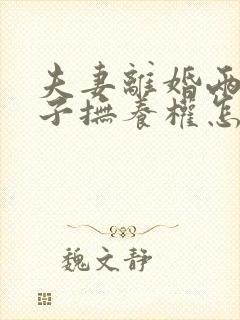 夫妻離婚兩
子撫養權怎
魏文靜